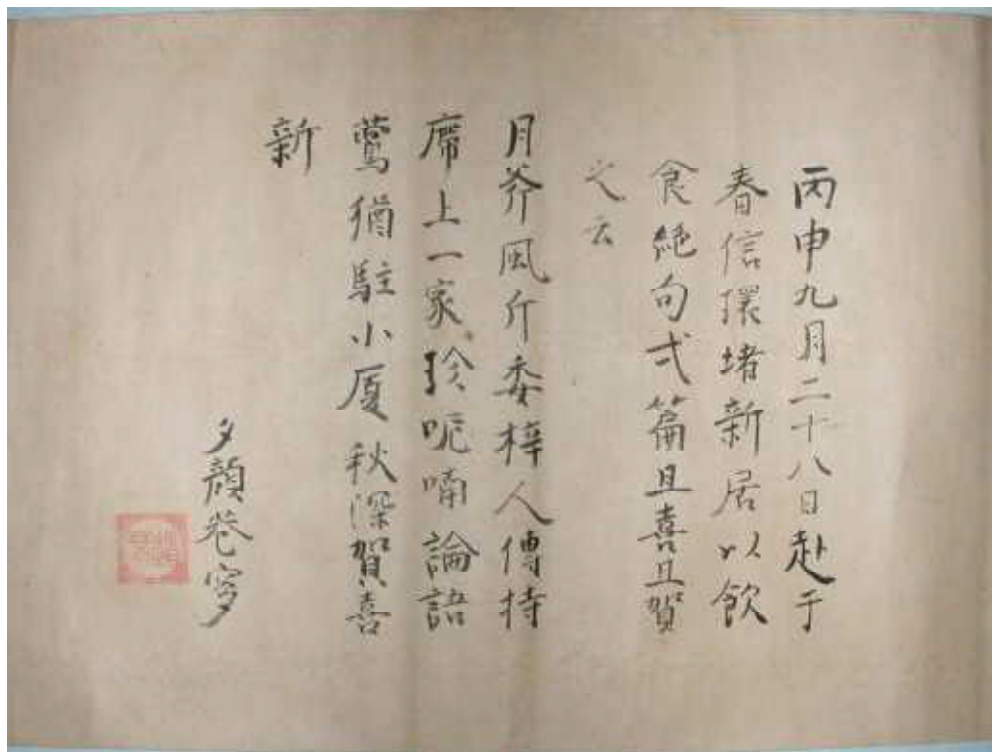 丙申九月二十八日赴于
春信環堵新居以飲
食絶句弐篇且喜且賀
之云
月斧風斤委梓人傳持
席上一家珍呢喃論語
鶯猶駐小廈秋深賀喜
新
夕顔巷